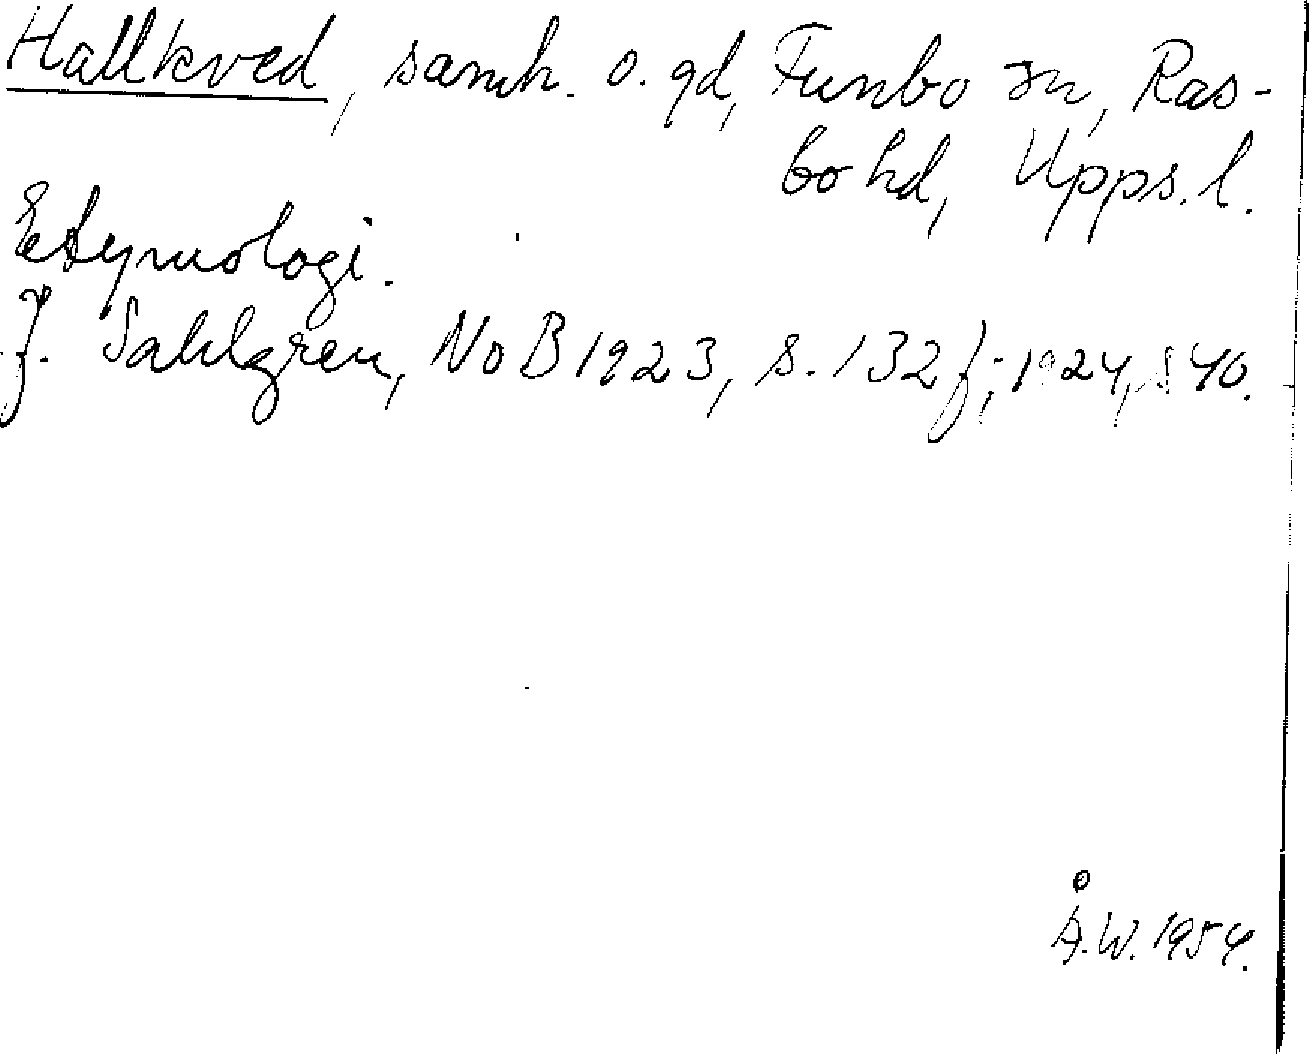 Hallkved, samh. o. gd, Funbo sn, Ras-
bo hd, Upps. l.
Etymologi.
J. Sahlgren, NoB 1923, s. 132 f; 1924, s 40.
Å.W. 1954.